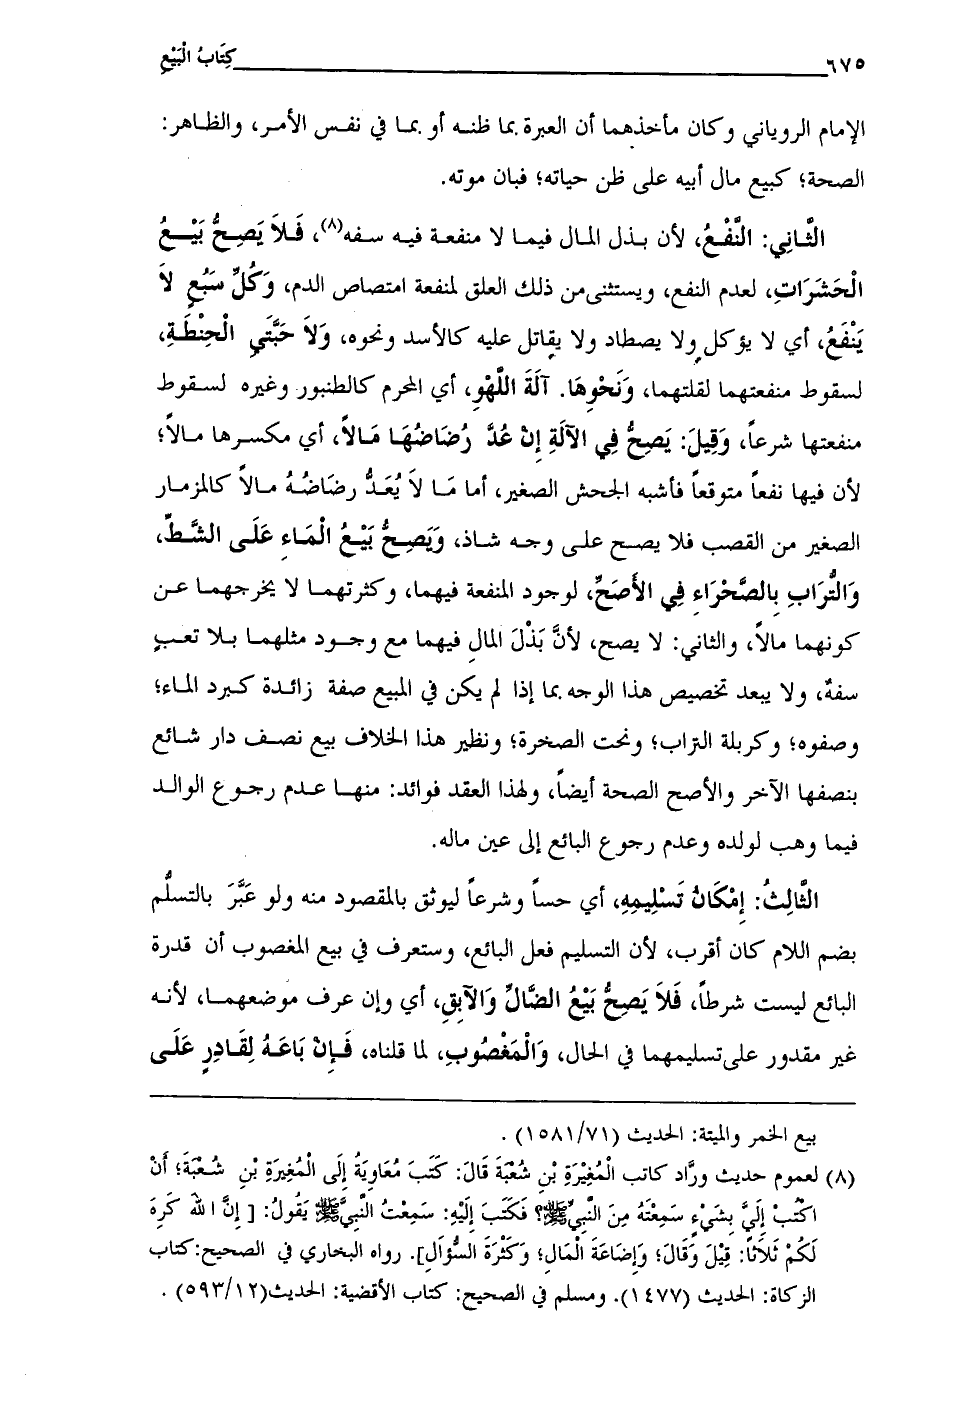 ٦٧٥ كِتَابُ الْبَيْعِ
الإمام الروياني وكان مأخذهما أن العبرة بما ظنه أو بما في نفس الأمر، والظاهر:
الصحة؛ كبيع مال أبيه على ظن حياته؛ فبان موته.
الثَّانِي: النَّفْعُ، لأن بذل المال فيما لا منفعة فيه سفه(٨)، فَلاَ يَصِحُّ بَيْعُ
الْحَشَرَاتِ، لعدم النفع، ويستثنى من ذلك العلق لمنفعة امتصاص الدم، وَكُلِّ سَبُعٍ لاَ
يَنْفَعُ، أي لا يؤكل ولا يصطاد ولا يقاتل عليه كالأسد ونحوه، وَلاَ حَبَّتَي الْحِنْطَةِ،
لسقوط منفعتهما لقلتهما، وَنَحْوِهَا. آلَةَ اللَّهْوِ، أي المحرم كالطنبور وغيره لسقوط
منفعتها شرعاً، وَقِيلَ: يَصِحُّ فِي الآلَةِ إِنْ عُدَّ رُضَاضُهَا مَالاً، أي مكسرها مالاً؛
لأن فيها نفعاً متوقعاً فأشبه الجحش الصغير، أما مَا لاَ يُعَدُّ رضَاضُهُ مالاً كالمزمار
الصغير من القصب فلا يصح على وجه شاذ، وَيَصِحُّ بَيْعُ الْمَاءِ عَلَى الشَّطِّ،
وَالتُّرَابِ بِالصَّحْرَاءِ فِي الأَصَحِّ، لوجود المنفعة فيهما، وكثرتهما لا يخرجهما عن
كونهما مالاً، والثاني: لا يصح، لأنَّ بَذْلَ المالِ فيهما مع وجود مثلهما بلا تعبٍ
سفهٌ، ولا يبعد تخصيص هذا الوجه بما إذا لم يكن في المبيع صفة زائدة كبرد الماء؛
وصفوه؛ وكربلة التراب؛ ونحت الصخرة؛ ونظير هذا الخلاف بيع نصف دار شائع
بنصفها الآخر والأصح الصحة أيضاً، ولهذا العقد فوائد: منها عدم رجوع الوالد
فيما وهب لولده وعدم رجوع البائع إلى عين ماله.
الثَّالِثُ: إِمْكَانُ تَسْلِيمِهِ، أي حساً وشرعاً ليوثق بالمقصود منه ولو عَبَّرَ بالتسلُّم
بضم اللام كان أقرب، لأن التسليم فعل البائع، وستعرف في بيع المغصوب أن قدرة
البائع ليست شرطاً، فَلاَ يَصِحُّ بَيْعُ الضَّالِّ وَالآبِقِ، أي وإن عرف موضعهما، لأنه
غير مقدور على تسليمهما في الحال، وَالْمَغْصُوبِ، لما قلناه، فَإِنْ بَاعَهُ لِقَادِرٍ عَلَى
بيع الخمر والميتة: الحديث (١٥٨١/٧١) .
(٨) لعموم حديث ورَّاد كاتب الْمُغِيْرَةِ بْنِ شُعْبَةَ قَالَ: كَتَبَ مُعَاوِيَةُ إِلَى الْمُغِيرَةِ بْنِ شُعْبَةَ؛ أَنْ
اكْتُبْ إِلَيَّ بِشَيْءٍ سَمِعْتَهُ مِنَ النَّبِيِّ ﷺ؟ فَكَتَبَ إِلَيْهِ: سَمِعْتُ النَّبِيَّ ﷺ يَقُولُ: [ إِنَّ اللهَ كَرِهَ
لَكُمْ ثَلاَثاً: قِيْلَ وَقَالَ؛ وَإِضَاعَةَ الْمَالِ؛ وَكَثْرَةَ السُّؤَالِ]. رواه البخاري في الصحيح: كتاب
الزكاة: الحديث (١٤٧٧). ومسلم في الصحيح: كتاب الأقضية: الحديث(٥٩٣/١٢) .